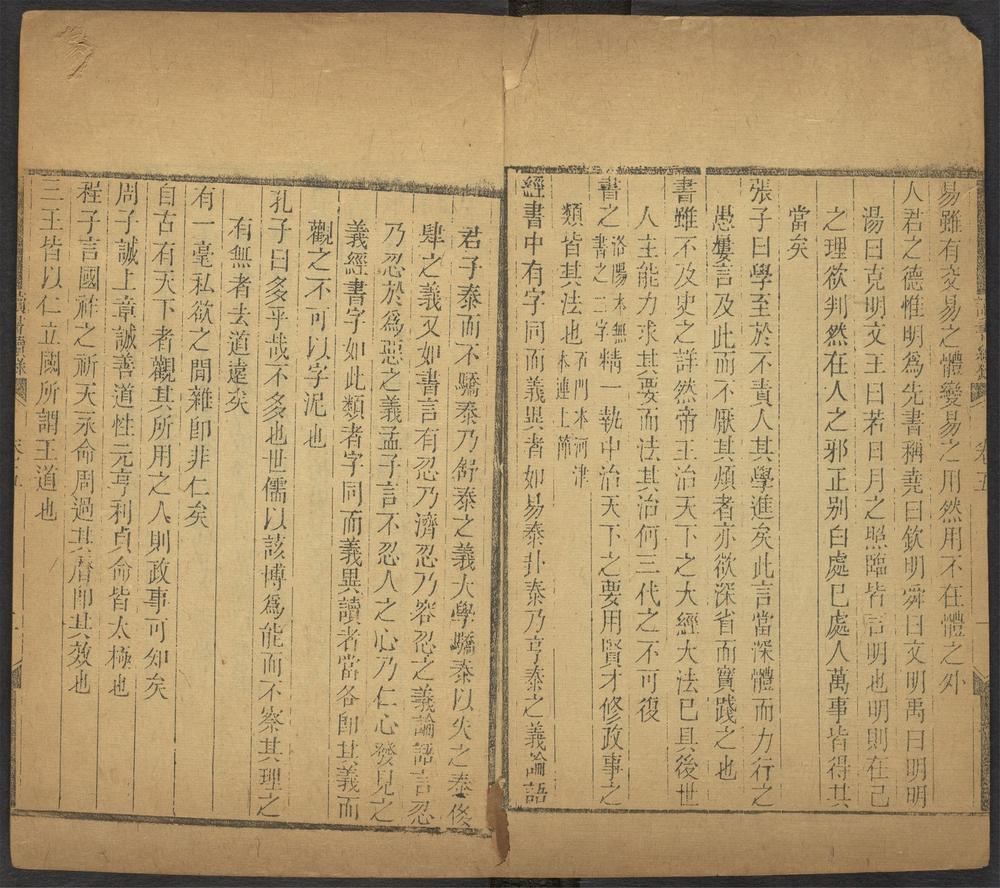 易雖有交易之體變易之用然用不在體之外
人君之德惟明爲先書稱堯曰欽明舜曰文明禹曰明明
湯曰克明文王曰若日月之照臨皆言明也明則在己
之理欲判然在人之邪正别白處已處人萬事皆得其
當矣
張子曰學至於不責人其學進矣此言當深體而力行之
愚婁言及此而不厭其煩者亦欲深省而實踐之也
書雖不及史之詳然帝王治天下之大經大法已具後世
人主能力求其要而法其治何三代之不可復
書之洛陽本無書之二字精一執中治天下之要用賢才修政事之
類皆其法也石門本河津本連上節
經書中有字同而義異者如易泰卦泰乃亨泰之義論語
君子泰而不驕泰乃舒泰之義大學驕泰以失之泰侈
肆之義又如書言有忍乃濟忍乃容忍之義論語言忍
乃忍於爲惡之義孟子言不忍人之心乃仁心發見之
義經書字如此類者字同而義異讀者當各卽其義而
觀之不可以字泥也
孔子曰多乎哉不多也世儒以該博爲能而不察其理之
有無者去道遠矣
有一毫私欲之閒雜卽非仁矣
自古有天下者觀其所用之人則政事可知矣
周子誠上章誠善道性元亨利貞命皆太極也
程子言國祚之祈天永命周過其曆卽其效也
三王皆以仁立國所謂王道也
讀書續錄
卷五